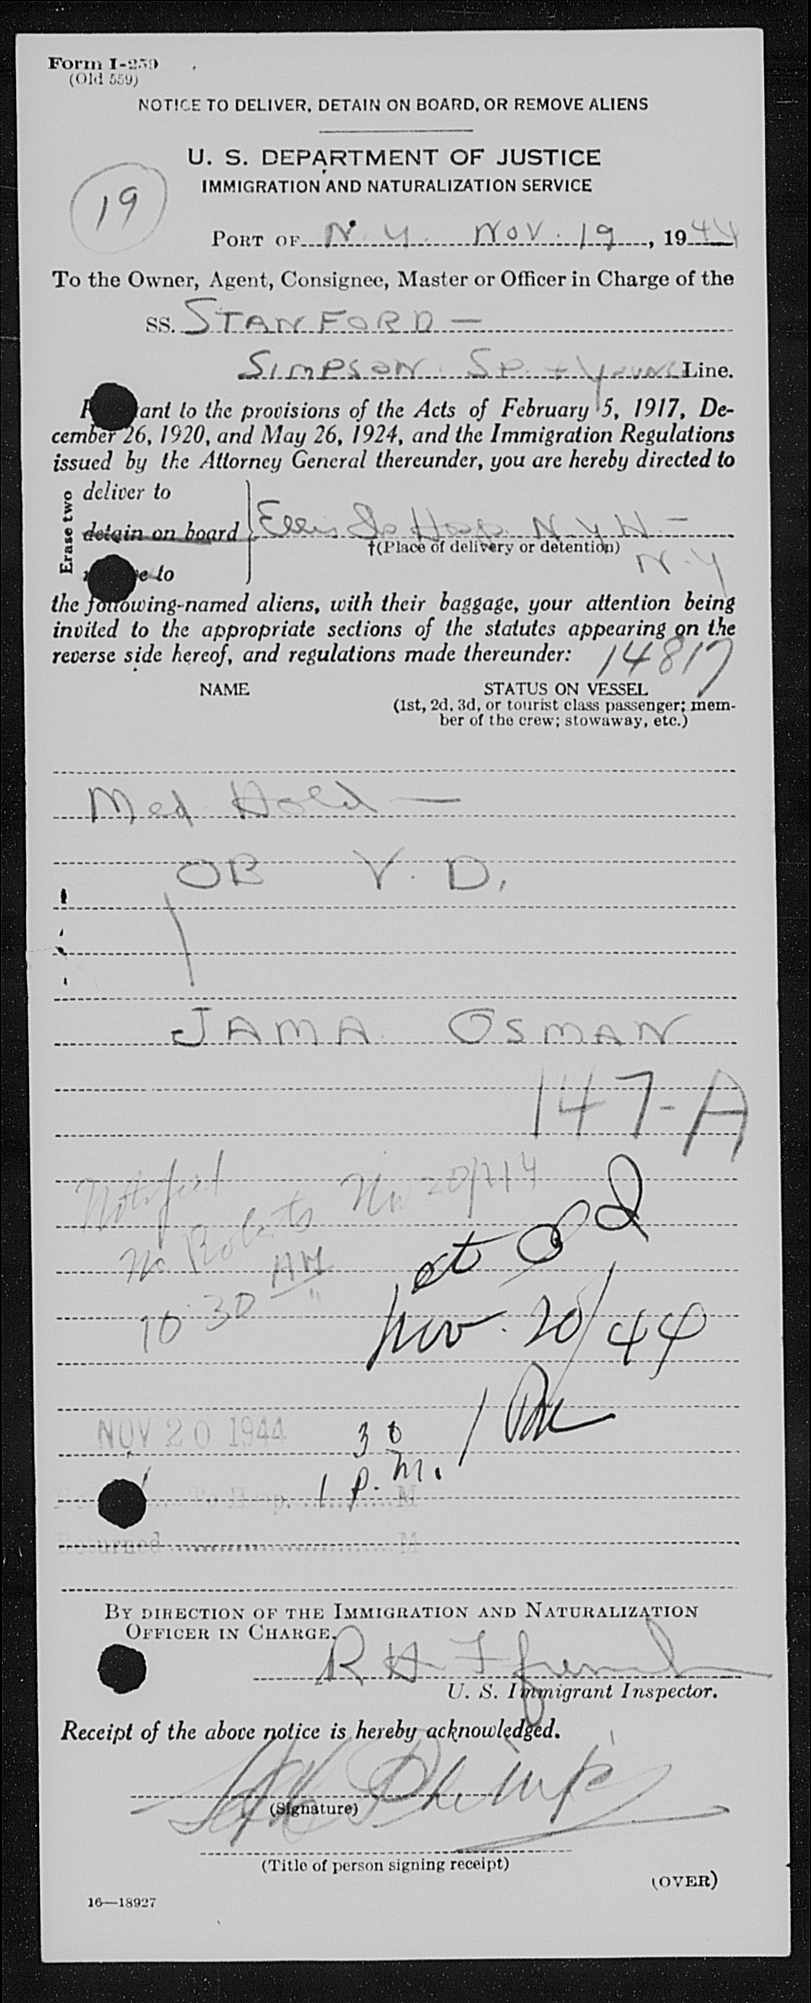 Form I-259
(Old 559)
NOTICE TO DELIVER, DETAIN ON BOARD, OR REMOVE ALIENS
U. S. DEPARTMENT OF JUSTICE
IMMIGRATION AND NATURALIZATION SERVICE
19
PORT OF N. Y. NOV. 19, 1944
To the Owner, Agent, Consignee, Master or Officer in Charge of the
SS. STANFORD —
SIMPSON Sp + Young Line.
ant to the provisions of the Acts of February 5, 1917, De-
cember 26, 1920, and May 26, 1924, and the Immigration Regulations
issued by the Attorney General thereunder, you are hereby directed to
Erase two
deliver to
detain on board Ellis Is Hosp. N.Y.H. —
†(Place of delivery or detention)
e to N. Y
the following-named aliens, with their baggage, your attention being
invited to the appropriate sections of the statutes appearing on the
reverse side hereof, and regulations made thereunder:
14817
NAME STATUS ON VESSEL
(1st, 2d, 3d, or tourist class passenger; mem-
ber of the crew; stowaway, etc.)
Med Hold —
OB V. D.
JAMA OSMAN
147-A
Notified
Mr. Roberts
10:30 AM
at
Nov. 20/44
NOV 20 1944
30
1 P. M.
To Hosp. M
Returned M
BY DIRECTION OF THE IMMIGRATION AND NATURALIZATION
OFFICER IN CHARGE.
R H
U. S. Immigrant Inspector.
Receipt of the above notice is hereby acknowledged.
(Signature)
(Title of person signing receipt)
(OVER)
16—18927